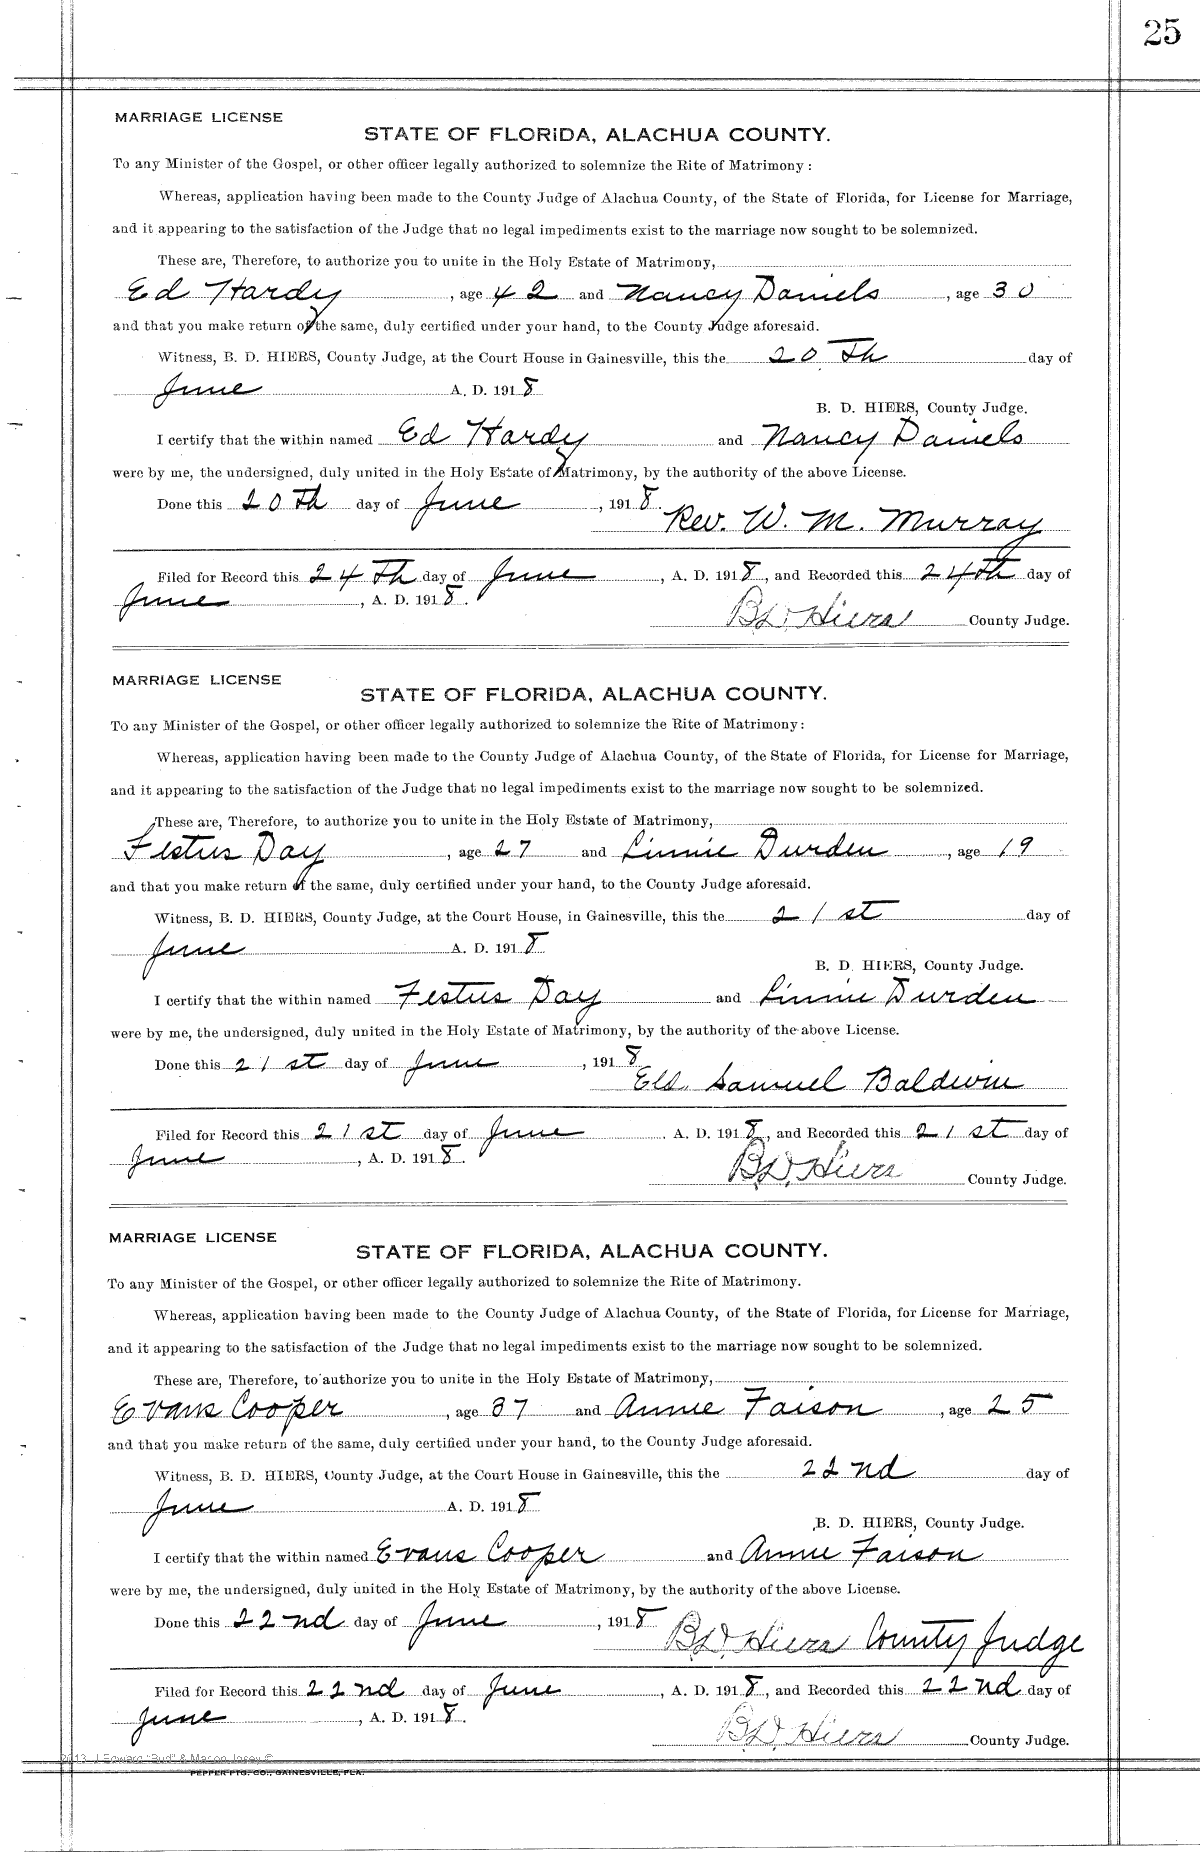 25
MARRIAGE LICENSE
STATE OF FLORIDA, ALACHUA COUNTY.
To any Minister of the Gospel, or other officer legally authorized to solemnize the Rite of Matrimony :
Whereas, application having been made to the County Judge of Alachua County, of the State of Florida, for License for Marriage,
and it appearing to the satisfaction of the Judge that no legal impediments exist to the marriage now sought to be solemnized.
These are, Therefore, to authorize you to unite in the Holy Estate of Matrimony,
Ed Hardy , age 42 and Nancy Daniels , age 30
and that you make return of the same, duly certified under your hand, to the County Judge aforesaid.
Witness, B. D. HIERS, County Judge, at the Court House in Gainesville, this the 20 Th day of
June A. D. 1918
B. D. HIERS, County Judge.
I certify that the within named Ed Hardy and Nancy Daniels
were by me, the undersigned, duly united in the Holy Estate of Matrimony, by the authority of the above License.
Done this 20 Th day of June , 1918.
Rev. W. M. Murray
Filed for Record this 24 Th day of June , A. D. 1918, and Recorded this 24th day of
June , A. D. 1918.
B.D. Hiers County Judge.
MARRIAGE LICENSE
STATE OF FLORIDA, ALACHUA COUNTY.
To any Minister of the Gospel, or other officer legally authorized to solemnize the Rite of Matrimony:
Whereas, application having been made to the County Judge of Alachua County, of the State of Florida, for License for Marriage,
and it appearing to the satisfaction of the Judge that no legal impediments exist to the marriage now sought to be solemnized.
These are, Therefore, to authorize you to unite in the Holy Estate of Matrimony,
Festus Day , age 27 and Linnie Durden , age 19
and that you make return of the same, duly certified under your hand, to the County Judge aforesaid.
Witness, B. D. HIERS, County Judge, at the Court House, in Gainesville, this the 21st day of
June A. D. 1918
B. D. HIERS, County Judge.
I certify that the within named Festus Day and Linnie Durden
were by me, the undersigned, duly united in the Holy Estate of Matrimony, by the authority of the above License.
Done this 21st day of June , 1918
Eld. Samuel Baldwin
Filed for Record this 21st day of June . A. D. 1918, and Recorded this 21st day of
June , A. D. 1918.
B.D. Hiers County Judge.
MARRIAGE LICENSE
STATE OF FLORIDA, ALACHUA COUNTY.
To any Minister of the Gospel, or other officer legally authorized to solemnize the Rite of Matrimony.
Whereas, application having been made to the County Judge of Alachua County, of the State of Florida, for License for Marriage,
and it appearing to the satisfaction of the Judge that no legal impediments exist to the marriage now sought to be solemnized.
These are, Therefore, to authorize you to unite in the Holy Estate of Matrimony,
Evans Cooper , age 37 and Annie Faison , age 25
and that you make return of the same, duly certified under your hand, to the County Judge aforesaid.
Witness, B. D. HIERS, County Judge, at the Court House in Gainesville, this the 22nd day of
June A. D. 1918
B. D. HIERS, County Judge.
I certify that the within named Evans Cooper and Annie Faison
were by me, the undersigned, duly united in the Holy Estate of Matrimony, by the authority of the above License.
Done this 22nd day of June , 1918
B.D. Hiers County Judge
Filed for Record this 22nd day of June , A. D. 1918, and Recorded this 22nd day of
June , A. D. 1918.
B.D. Hiers County Judge.
2013 J Edward "Bud" & Macon Josey ©
PEPPER PTG. CO., GAINESVILLE, FLA.